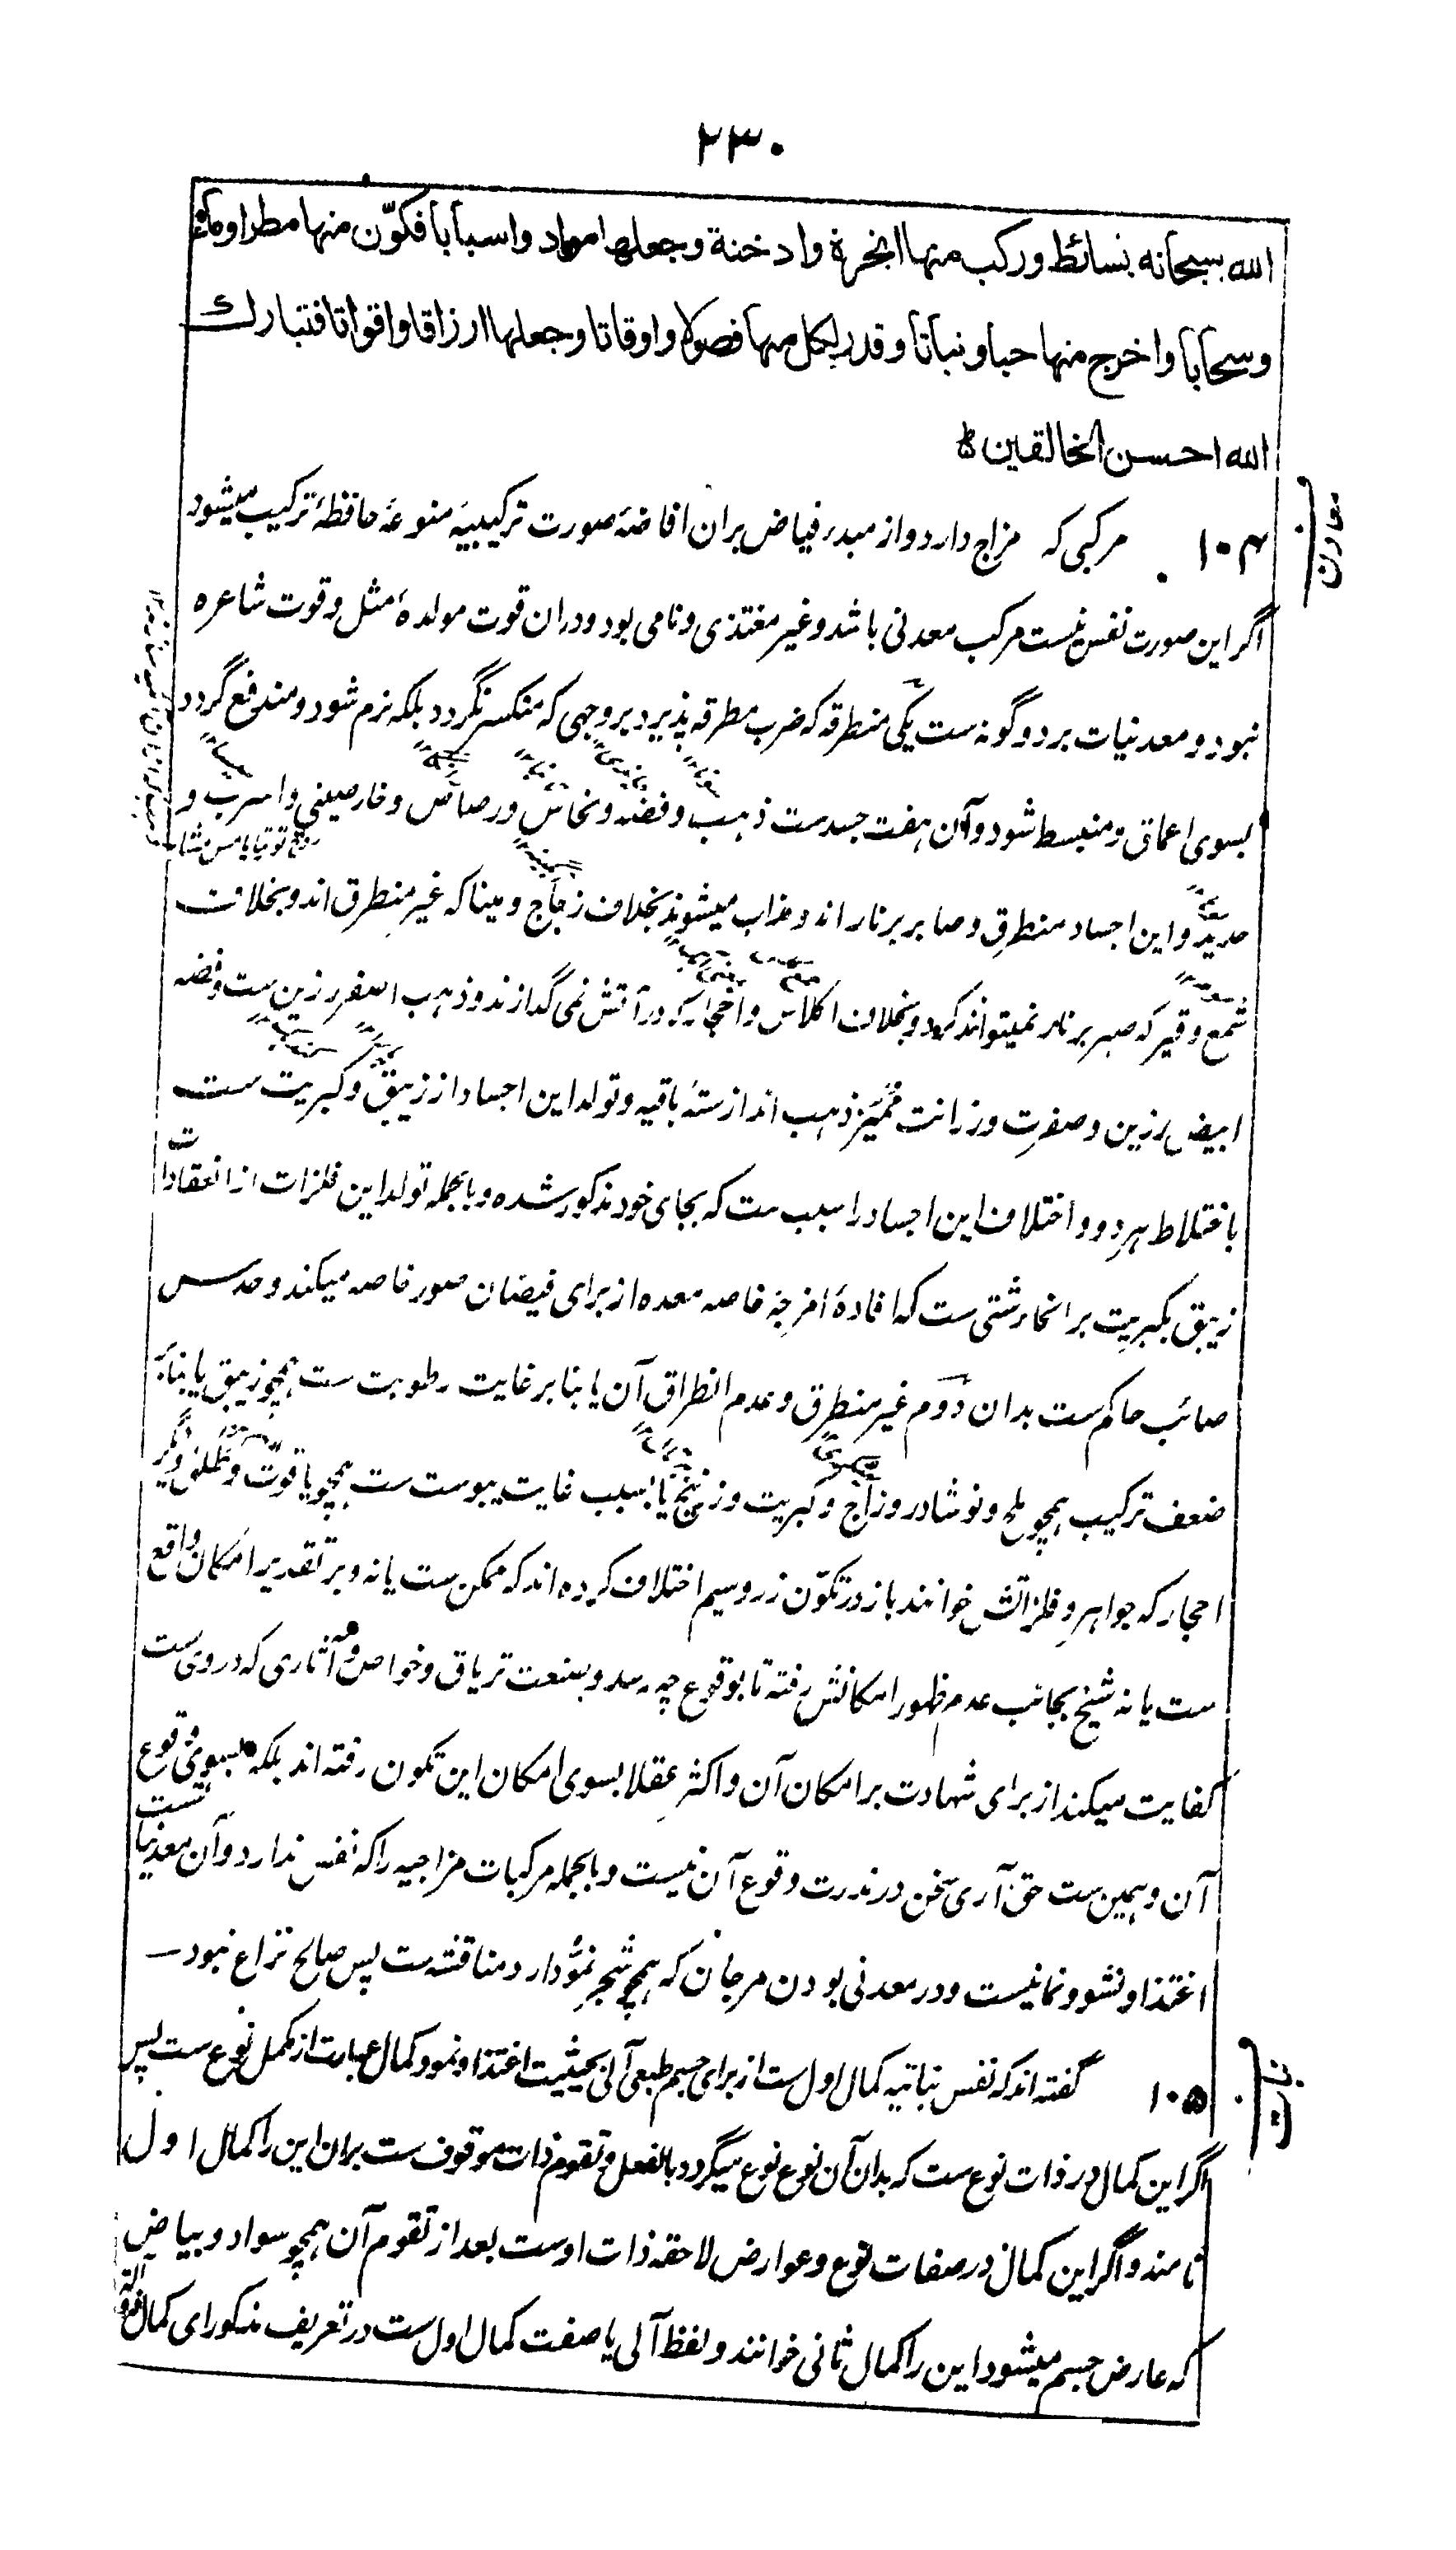 ۲۳۰
الله سبحانه بسائط وركب منها ابخرة وادخنة وجعلها امواد واسبابا فكوّن منها مطرا وماء
وسحابا واخرج منها حبا ونباتا وقدر لكل منها فصولا واوقاتا وجعلها ارزاقا واقواتا فتبارك
الله احسن الخالقين
معادن
۱۰۴ مرکبی که مزاج دارد و از مبدء فیاض بران افاضهٔ صورت ترکیبیه منوعهٔ حافظهٔ ترکیب میشود
اگر این صورت نفس نیست مرکب معدنی باشد و غیر مغتذی و نامی بود و دران قوت مولدهٔ مثل و قوت شاعره
نبود و معدنیات بر دو گونه ست یکی منطرقه که ضرب مطرقه پذیرد بروجهی که منکسر نگردد بلکه نرم شود و مندفع گردد
بسوی اعماق و منبسط شود و آن هفت جسدست ذهب و فضه و نحاس و رصاص و خارصینی و اسرب و
حدید و این اجساد منطرق و صابر بر نار اند و مذاب میشوند بخلاف زجاج و مینا که غیر منطرق اند و بخلاف
شمع و قیر که صبر بر نار نمیتواند کرد و بخلاف اکلاس و احجار که در آتش نمی گدازند و ذهب اصفر رزین ست و فضه
ابیض رزین و صفرت و رزانت ممیّز ذهب اند از ستهٔ باقیه و تولد این اجساد از زیبق و کبریت ست
باختلاط هر دو و اختلاف این اجساد را سبب ست که بجای خود مذکور شده و بالجمله تولد این فلزات از انعقادات
زیبق بکبریت بر انحاء شتی ست که افادهٔ امزجهٔ خاصه معده از برای فیضان صور خاصه میکند و حدس
صائب حاکم ست بدان دوم غیر منطرق و عدم انطراق آن یا بنابر غایت رطوبت ست همچو زیبق یا بنابر
ضعف ترکیب همچو ملح و نوشادر و زاج و کبریت و زرنیخ یا بسبب غایت یبوست ست همچو یاقوت و طلق و دیگر
احجار که جواهر و فلزاتش خوانند باز در تکوّن زر و سیم اختلاف کرده اند که ممکن ست یا نه و بر تقدیر امکان واقع
ست یا نه شیخ بجانب عدم ظهور امکانش رفته تا بوقوع چه رسد و صنعت تریاق و خواص و آثاری که در وی ست
کفایت میکند از برای شهادت بر امکان آن و اکثر عقلا بسوی امکان این تکون رفته اند بلکه بسوی وقوع
آن و همین ست حق آری سخن در ندرت وقوع آن نیست و بالجمله مرکبات مزاجیه را که نفس ندارد و آن معدنیاتست
اغتذا و نشو و نما نیست و در معدنی بودن مرجان که همچو شجر نمو دارد مناقشه ست پس صالح نزاع نبود
نبات
۱۰۵ گفته اند که نفس نباتیه کمال اول ست از برای جسم طبعی آلی بحیثیت اغتذا و نمو و کمال عبارت از مکمل نوع ست پس
اگر این کمال در ذات نوع ست که بدان آن نوع نوع میگردد بالفعل و تقوم ذات موقوف ست بران این را کمال اول
نامند و اگر این کمال در صفات نوع و عوارض لاحقه ذات اوست بعد از تقوم آن همچو سواد و بیاض
که عارض جسم میشود این را کمال ثانی خوانند و لفظ آلی یا صفت کمال اول ست در تعریف مذکور ای کمال